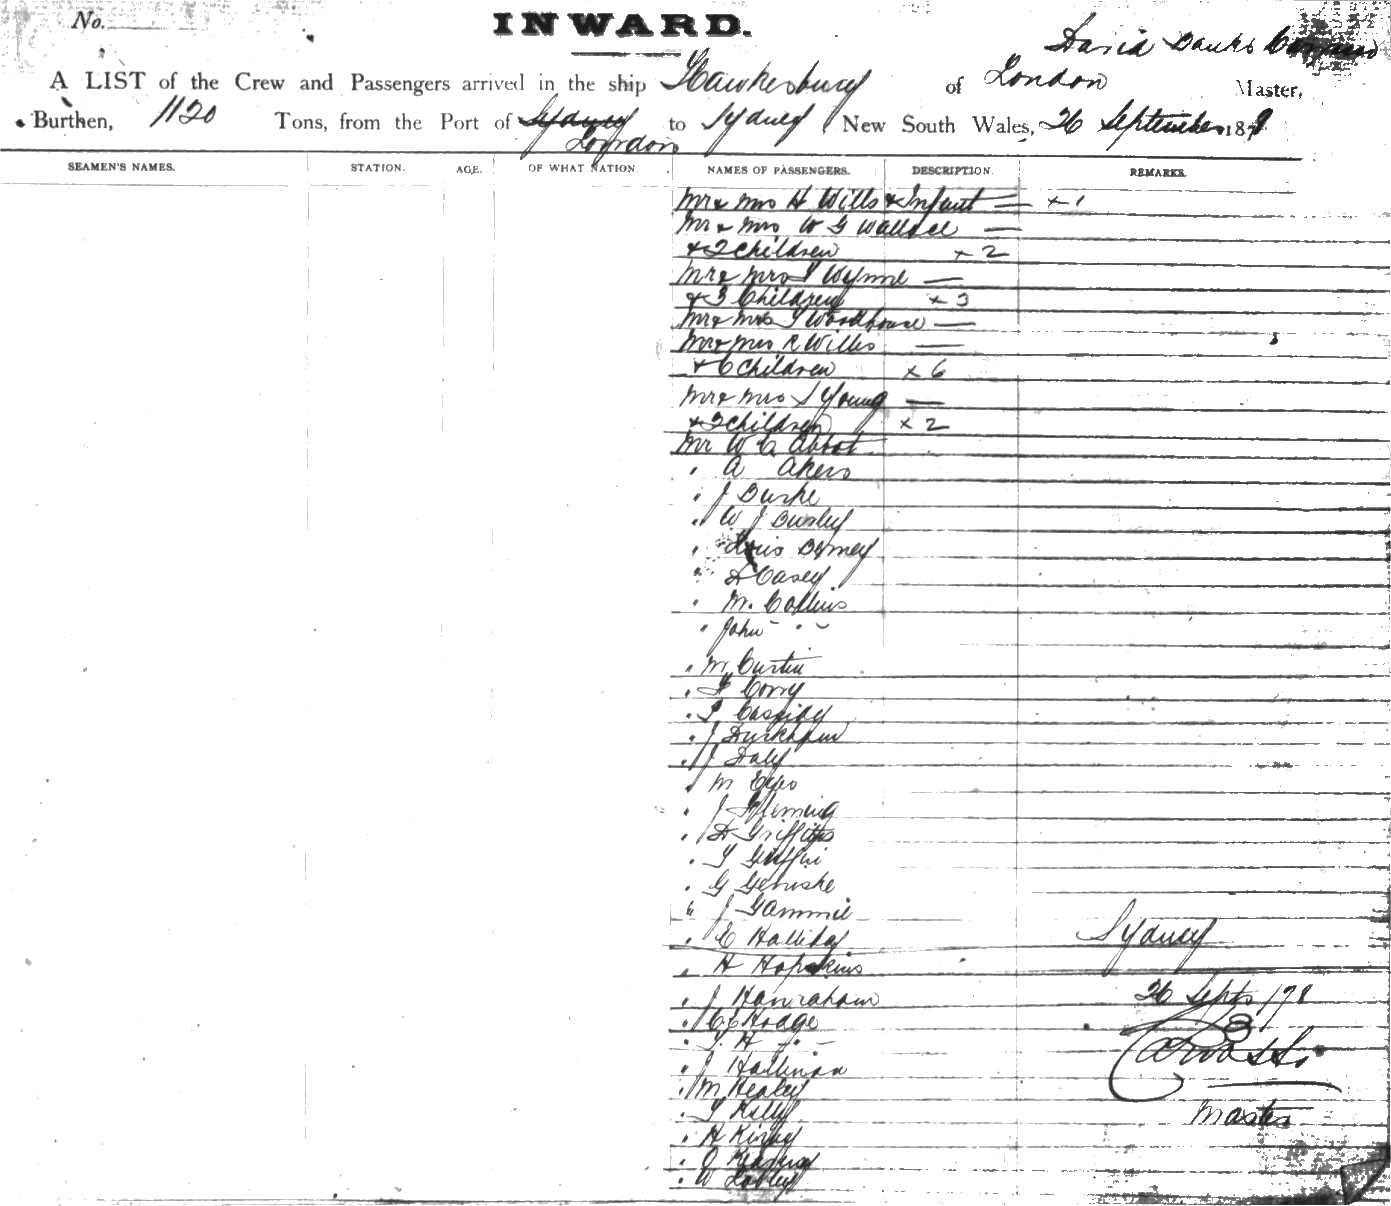 No.
INWARD.
David Banks
A LIST of the Crew and Passengers arrived in the ship Hawkesbury of London Master,
Burthen, 1120 Tons, from the Port of Sydney London to Sydney New South Wales, 26 September 187
SEAMEN'S NAMES. STATION. AGE. OF WHAT NATION. NAMES OF PASSENGERS. DESCRIPTION. REMARKS.
Mr & Mrs H Wills & Infant — × 1
Mr & Mrs W G Wallace —
& 2 Children × 2
Mr & Mrs Wynne —
& 3 Children × 3
Mr & Mrs T Woodhouse —
Mr & Mrs R Willis —
& 6 Children × 6
Mr & Mrs S Young —
& 2 Children × 2
Mr W C Abbot
" A Akers
" J Burke
" W J Busley
" Berney
" D Casey
" M. Collins
" John " -
" M Curtin
" Corry
" Cassidy
" J
" J Daly
" M
" J Fleming
" D Griffiths
" T Griffin
" G
" J Gammie
" C Halliday Sydney
" H Hopskins
" J Hanrahan 26 Septr /78
" C E Hodge
" T. H - " -
" J Hallinan
" M Healey
" T Kelly Master
" H
" O
" W